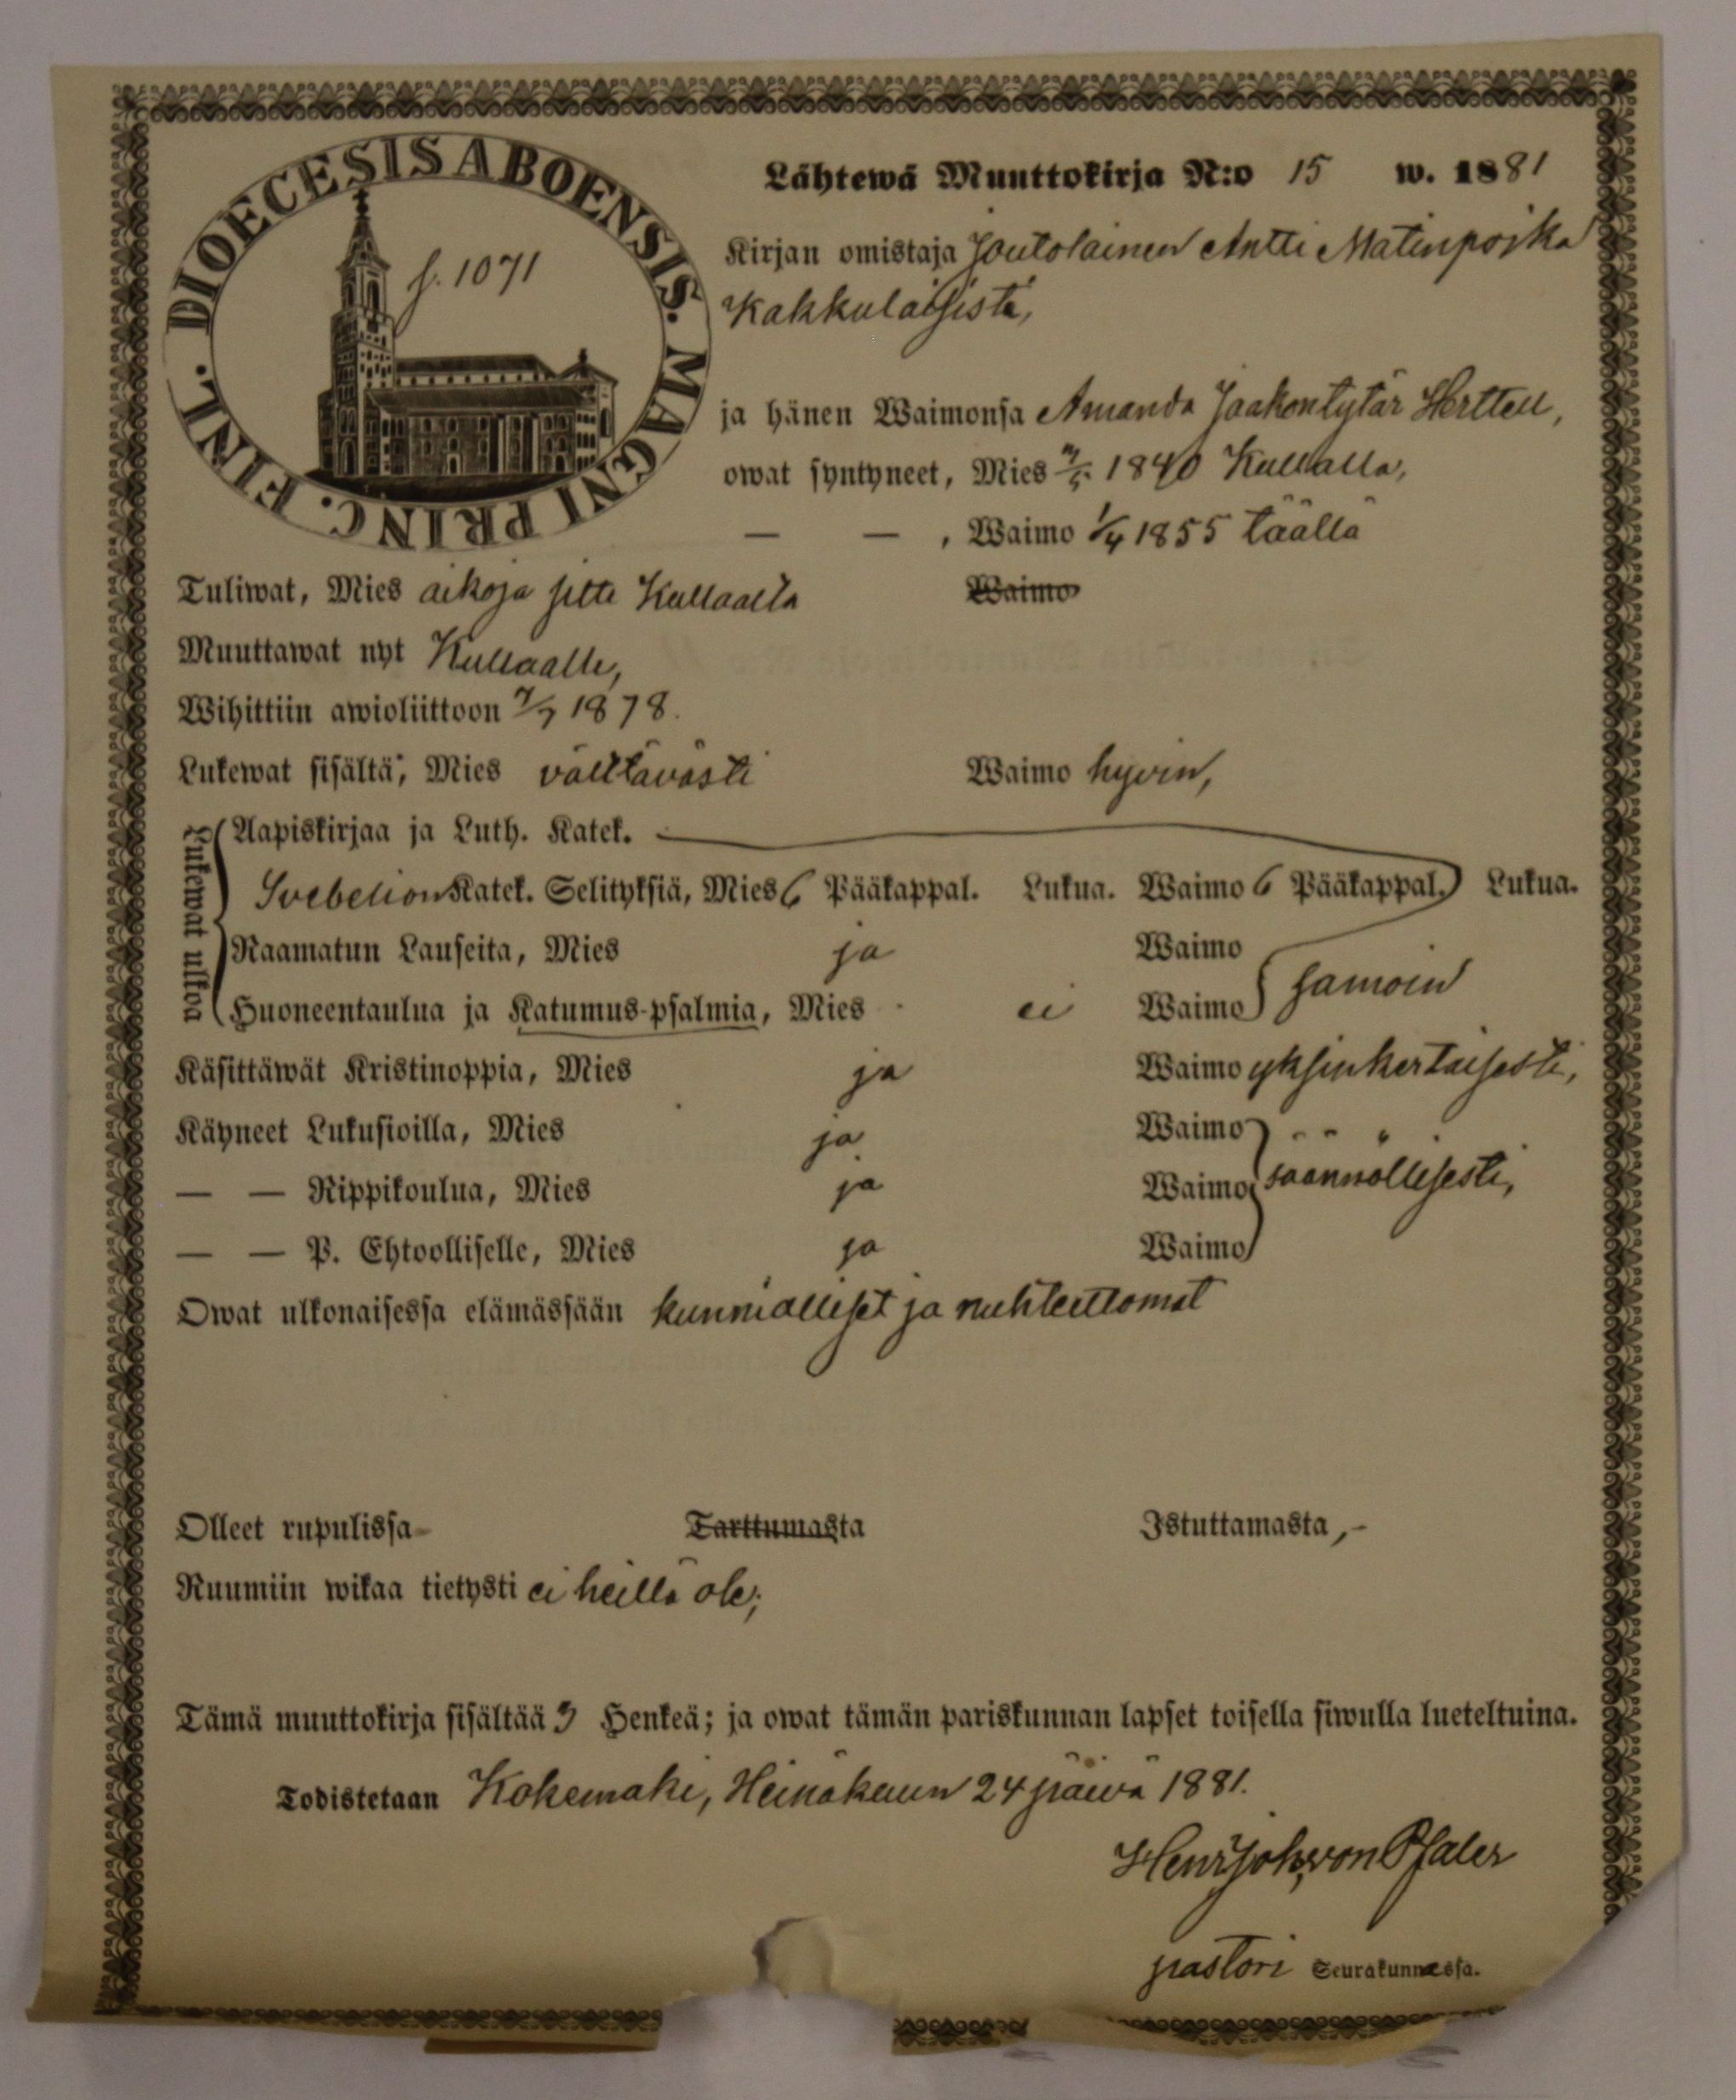 DIOECESIS ABOENSIS. MAGNI PRINC. FINL.
f. 1071
Lähtewä Muuttokirja N:o 15 w. 1881
Kirjan omistaja Joutolainen Antti Matinpoika
Kakkulaisista,
ja hänen Waimonsa Amanda Jaakontytär Herttell,
owat syntyneet, Mies 1840 Kullalla,
— — , Waimo 1/4 1855 täällä
Tuliwat, Mies aikoja sitte Kullaalta Waimo
Muuttawat nyt Kullaalle,
Wihittiin awioliittoon 7/7 1878.
Lukewat sisältä, Mies välttävästi Waimo hyvin,
Lukewat ulkoa
Aapiskirjaa ja Luth. Katek.
Svebelion Katek. Selityksiä, Mies 6 Pääkappal. Lukua. Waimo 6 Pääkappal. Lukua.
Raamatun Lauseita, Mies ja Waimo
Huoneentaulua ja Katumus-psalmia, Mies ei Waimo samoin
Käsittäwät Kristinoppia, Mies ja Waimo yksinkertaisesti,
Käyneet Lukusioilla, Mies ja Waimo
— — Rippikoulua, Mies ja Waimo säännöllisesti,
— — P. Ehtoolliselle, Mies ja Waimo
Owat ulkonaisessa elämässään kunnialliset ja nuhteettomat
Olleet rupulissa Tarttumasta Istuttamasta,-
Ruumiin wikaa tietysti ei heillä ole;
Tämä muuttokirja sisältää 3 Henkeä; ja owat tämän pariskunnan lapset toisella siwulla lueteltuina.
Todistetaan Kokemäki, Heinäkuun 24 päivä 1881.
Henr Joh, von Pfaler
pastori Seurakunnassa.